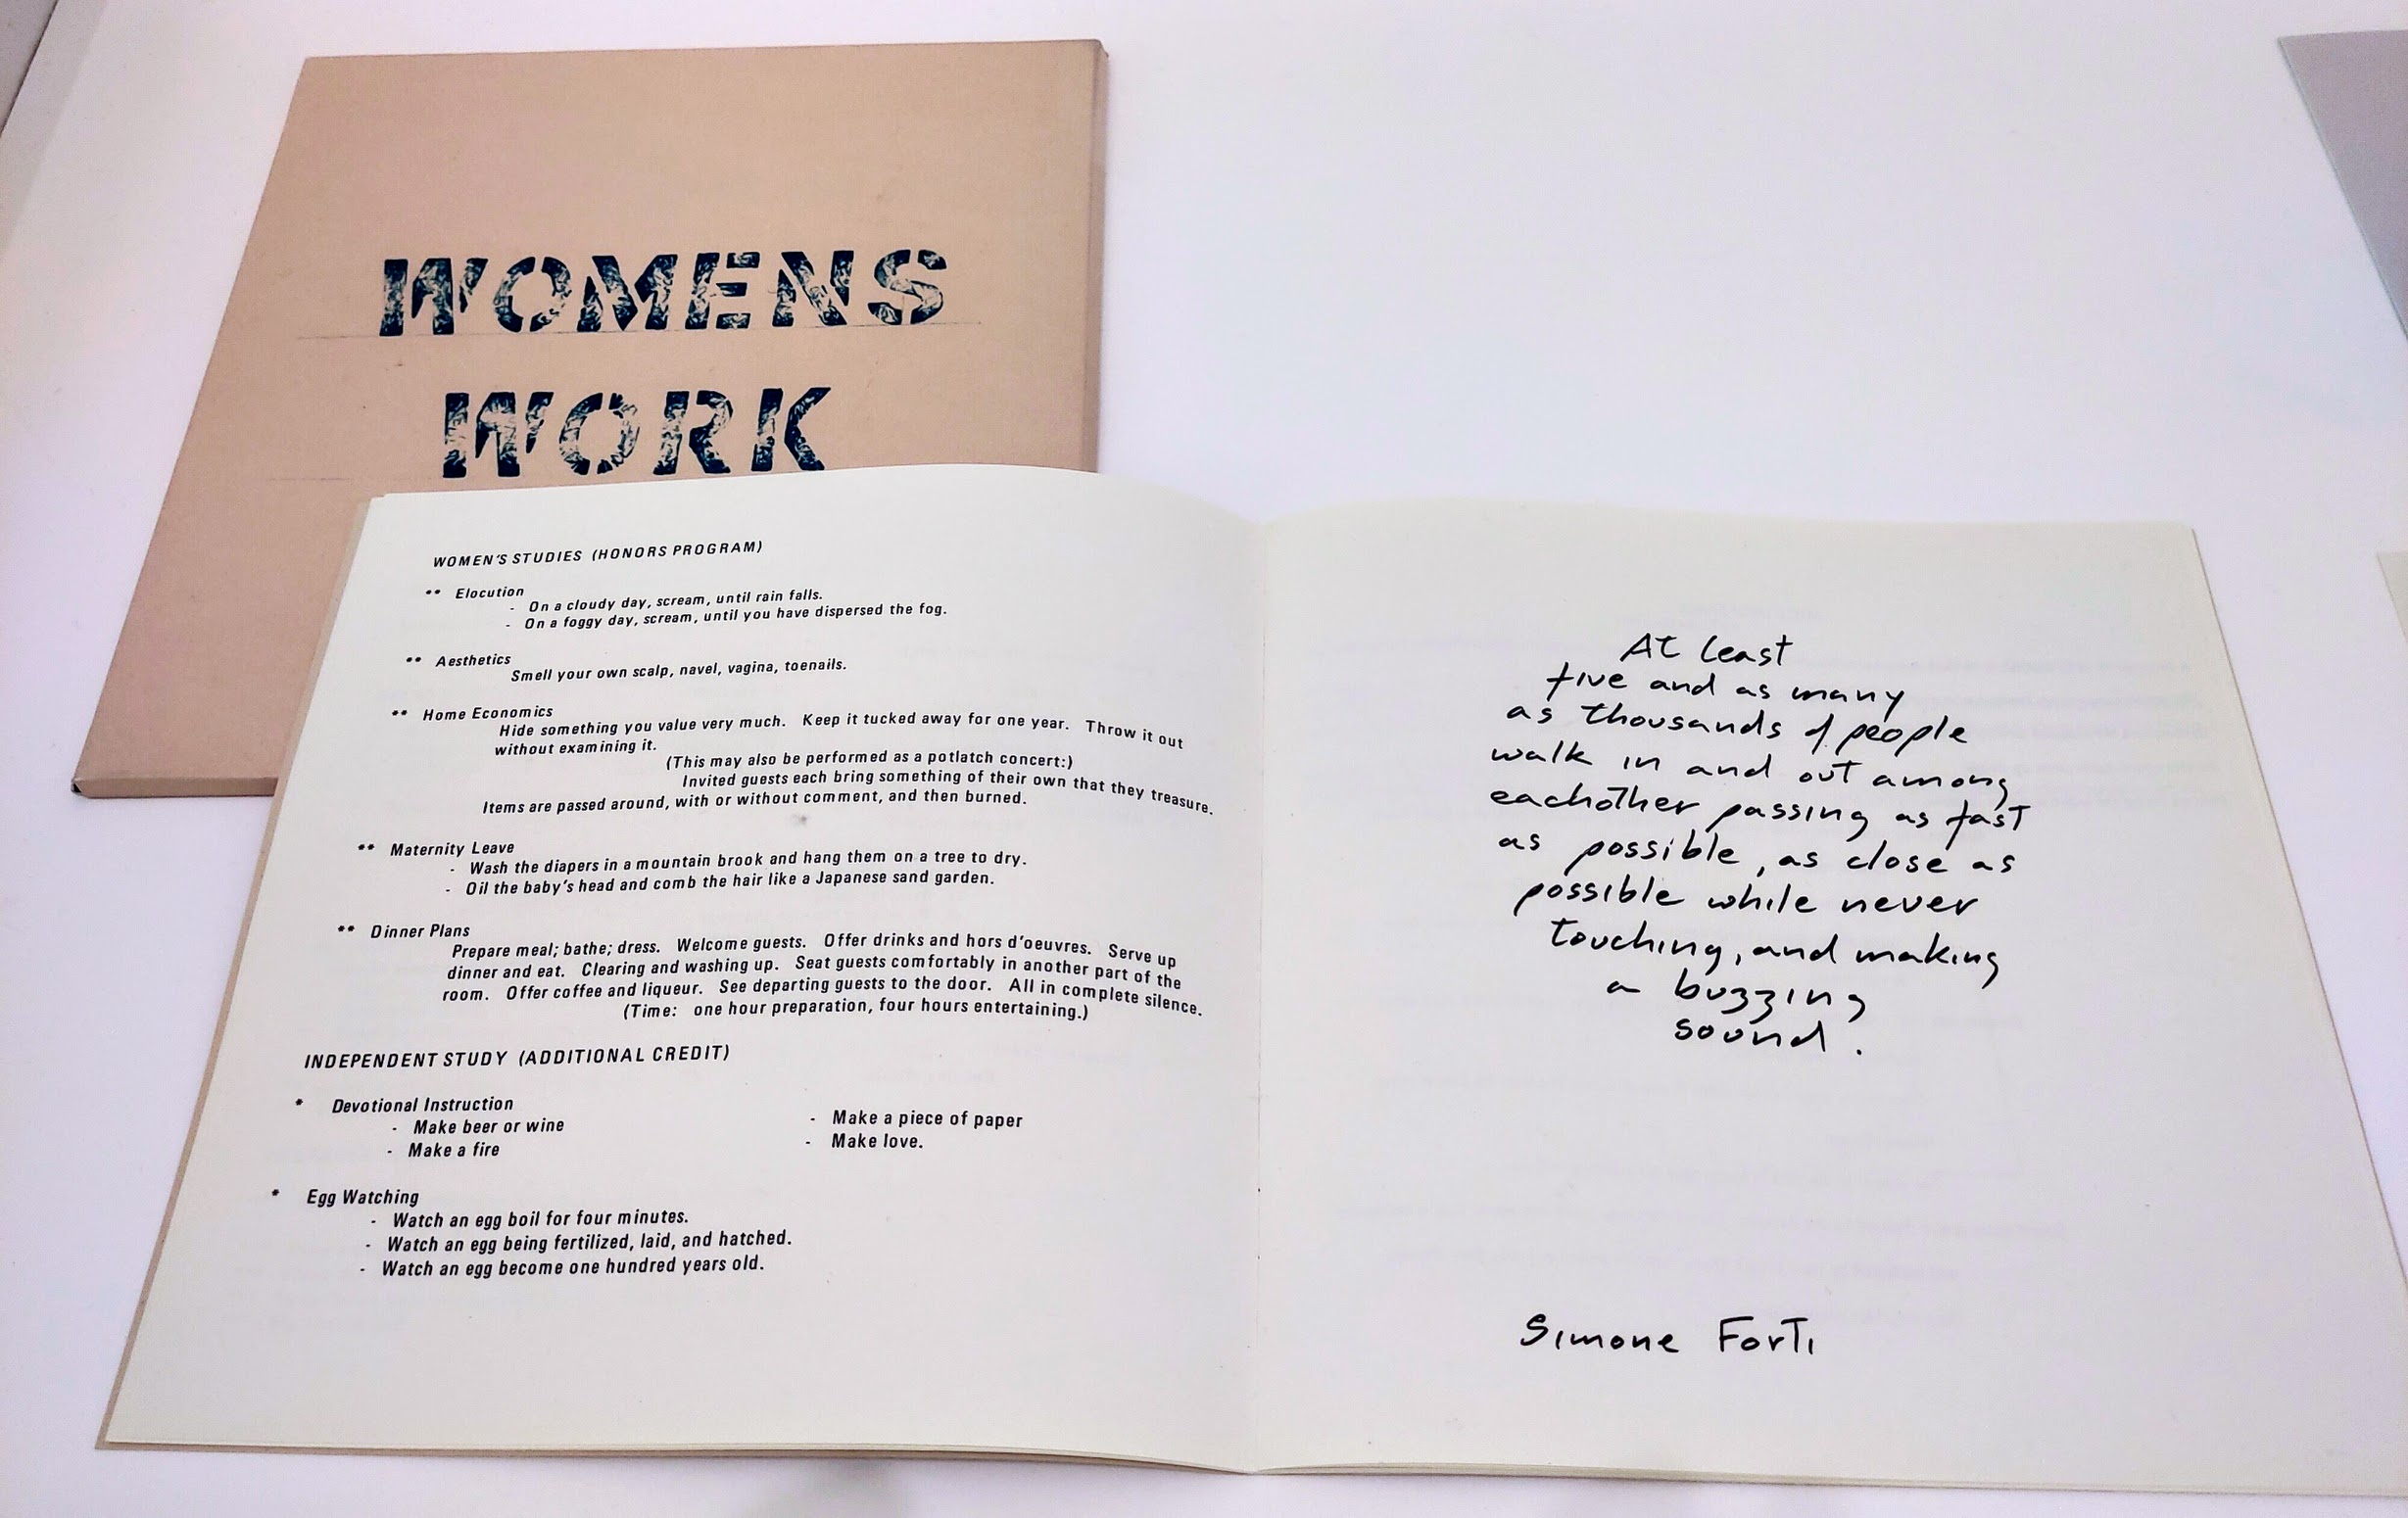 WOMENS
WORK
WOMEN'S STUDIES (HONORS PROGRAM)
** Elocution
- On a cloudy day, scream, until rain falls.
- On a foggy day, scream, until you have dispersed the fog.
** Aesthetics
Smell your own scalp, navel, vagina, toenails.
** Home Economics
Hide something you value very much. Keep it tucked away for one year. Throw it out
without examining it.
(This may also be performed as a potlatch concert:)
Invited guests each bring something of their own that they treasure.
Items are passed around, with or without comment, and then burned.
** Maternity Leave
- Wash the diapers in a mountain brook and hang them on a tree to dry.
- Oil the baby's head and comb the hair like a Japanese sand garden.
** Dinner Plans
Prepare meal; bathe; dress. Welcome guests. Offer drinks and hors d'oeuvres. Serve up
dinner and eat. Clearing and washing up. Seat guests comfortably in another part of the
room. Offer coffee and liqueur. See departing guests to the door. All in complete silence.
(Time: one hour preparation, four hours entertaining.)
INDEPENDENT STUDY (ADDITIONAL CREDIT)
* Devotional Instruction
- Make beer or wine
- Make a fire
- Make a piece of paper
- Make love.
* Egg Watching
- Watch an egg boil for four minutes.
- Watch an egg being fertilized, laid, and hatched.
- Watch an egg become one hundred years old.
At least
five and as many
as thousands of people
walk in and out among
eachother passing as fast
as possible, as close as
possible while never
touching, and making
a buzzing
sound.
Simone Forti